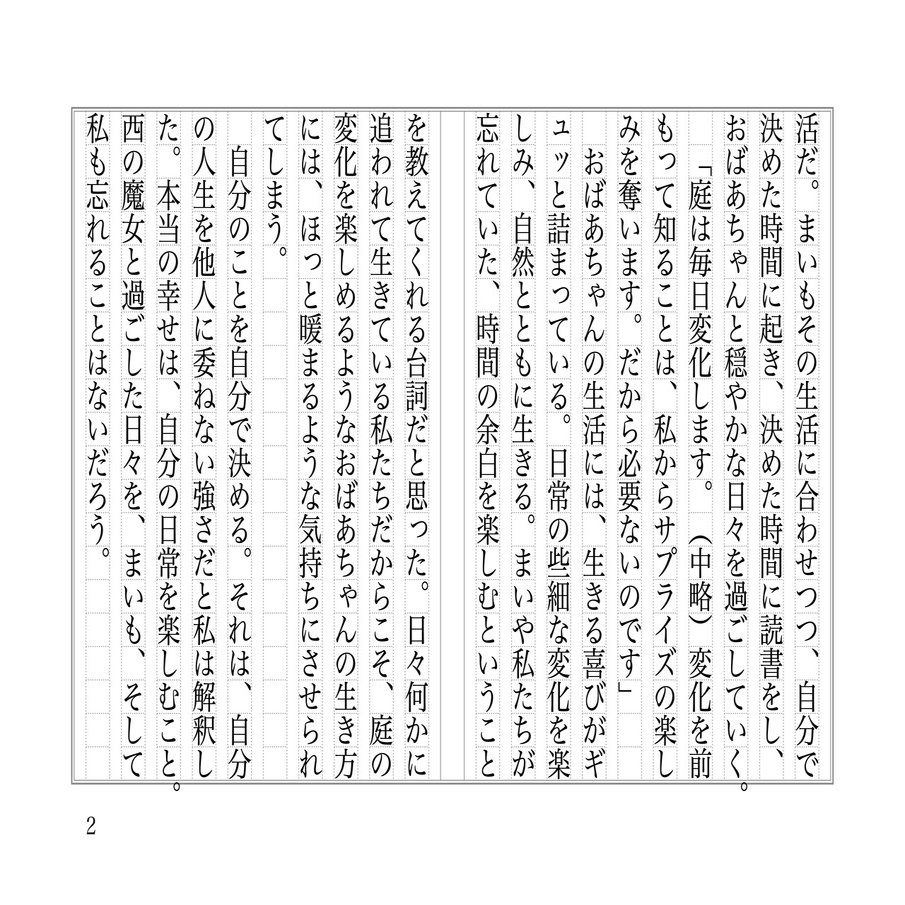 活だ。まいもその生活に合わせつつ、自分で
決めた時間に起き、決めた時間に読書をし、
おばあちゃんと穏やかな日々を過ごしていく。
「庭は毎日変化します。（中略）変化を前
もって知ることは、私からサプライズの楽し
みを奪います。だから必要ないのです」
おばあちゃんの生活には、生きる喜びがギ
ュッと詰まっている。日常の些細な変化を楽
しみ、自然とともに生きる。まいや私たちが
忘れていた、時間の余白を楽しむということ
を教えてくれる台詞だと思った。日々何かに
追われて生きている私たちだからこそ、庭の
変化を楽しめるようなおばあちゃんの生き方
には、ほっと暖まるような気持ちにさせられ
てしまう。
自分のことを自分で決める。それは、自分
の人生を他人に委ねない強さだと私は解釈し
た。本当の幸せは、自分の日常を楽しむこと。
西の魔女と過ごした日々を、まいも、そして
私も忘れることはないだろう。
2